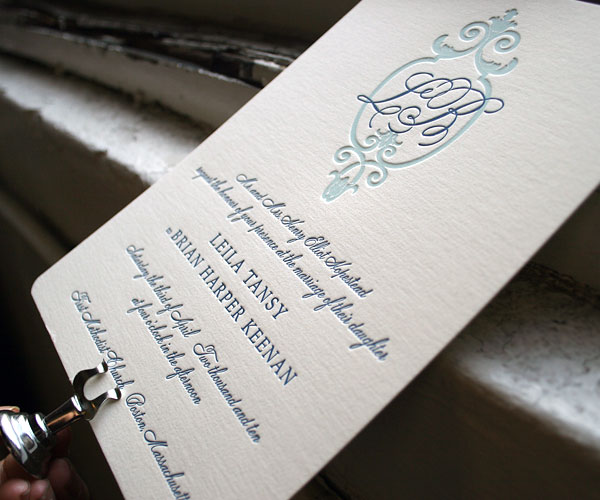 Mr. and Mrs. Henry Elliot
request the honour of your presence at the marriage of their daughter
LEILA TANSY
to BRIAN HARPER KEENAN
Saturday the third of April Two thousand and ten
at four o'clock in the afternoon
First Methodist Church Boston, Massachusetts